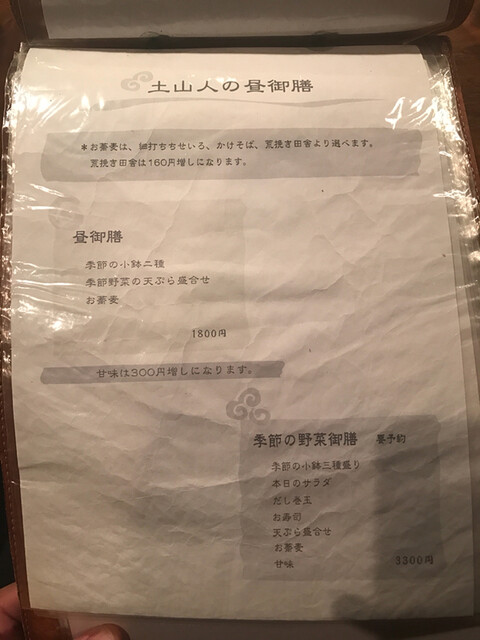 土山人の昼御膳
*お蕎麦は、細打ちせいろ、かけそば、荒挽き田舎より選べます。
荒挽き田舎は160円増しになります。
昼御膳
季節の小鉢二種
季節野菜の天ぷら盛合せ
お蕎麦
1800円
甘味は300円増しになります。
季節の野菜御膳 要予約
季節の小鉢三種盛り
本日のサラダ
だし巻玉
お寿司
天ぷら盛合せ
お蕎麦
甘味 3300円